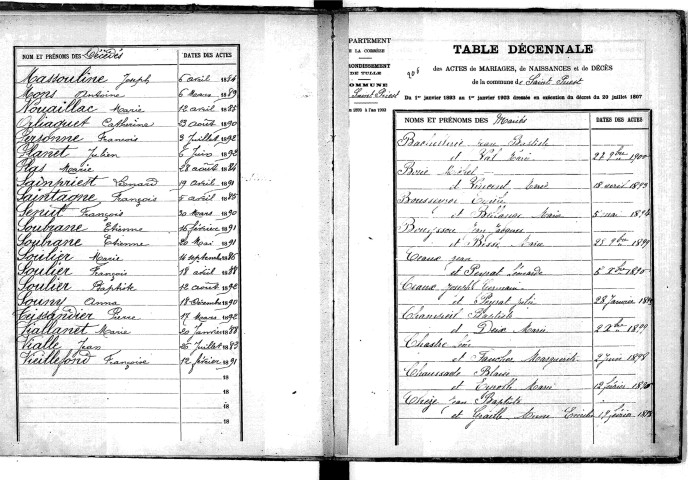 NOM ET PRÉNOMS DES Décédés DATES DES ACTES
Massouline Joseph 6 avril 1884
Mons Antoine 6 Mars 1889
Nouaillac Marie 12 avril 1885
Orliaguet Catherine 23 août 1890
Personne François 3 Juillet 1892
Planet Julien 6 Juin 1892
Plas Marie 28 août 1884
Sainpriest Léonard 19 avril 1891
Saintagne François 5 avril 1885
Senut François 20 Mars 1890
Soubrane Etienne 16 février 1891
Soubrane Etienne 20 Mai 1891
Soulier Marie 14 septembre 1886
Soulier François 18 avril 1888
Soulier Baptiste 12 août 1892
Souny Anna 18 Décembre 1890
Teissandier Pierre 17 Mars 1892
Viallanet Marie 20 Janvier 1888
Vialle Jean 25 Juillet 1883
Vieillefond Françoise 12 février 1891
18
18
18
18
DÉPARTEMENT
DE LA CORRÈZE
ARRONDISSEMENT
DE TULLE
COMMUNE
Saint Priest
208
TABLE DÉCENNALE
des ACTES de MARIAGES, de NAISSANCES et de DÉCÈS
de la commune de Saint Priest
Du 1er janvier 1893 au 1er janvier 1903 dressée en exécution du décret du 20 juillet 1807
NOMS ET PRÉNOMS DES Mariés DATES DES ACTES
Jean Baptiste
et Marie 22 9bre 1900
et 18 avril 1893
et Marie 5 mai
Jean Jacques
et Marie 28 9bre 1899
Ceaux Jean
et Peyrat Léonarde
Ceaux Joseph Germain
et Peyrat Julie 28 Janvier
Baptiste
et Marie 1899
Chastre
et Faucher Marguerite 9 Juin 1898
Chaussade Blaise
et Eyrolle Marie 12 février
Chèze Jean Baptiste
et Graille Marie 12 février